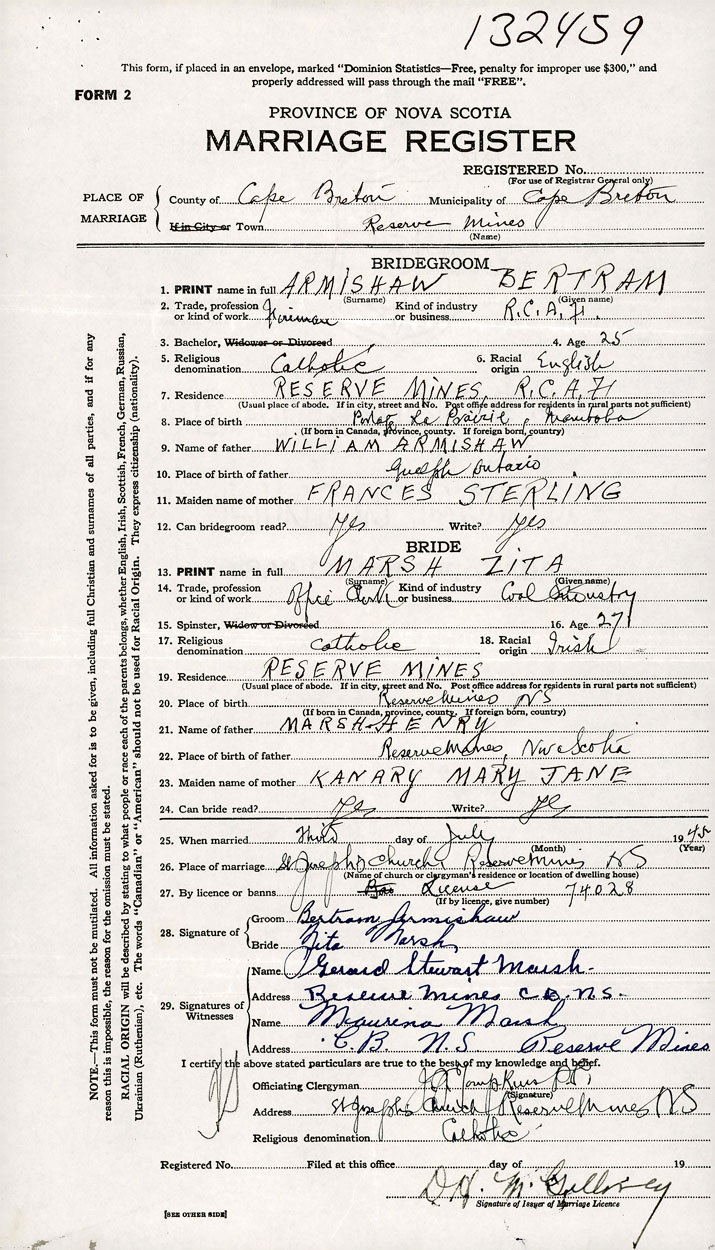 132459
This form, if placed in an envelope, marked “Dominion Statistics—Free, penalty for improper use $300,” and
properly addressed will pass through the mail “FREE”.
FORM 2
PROVINCE OF NOVA SCOTIA
MARRIAGE REGISTER
REGISTERED No.
(For use of Registrar General only)
PLACE OF MARRIAGE
County of Cape Breton Municipality of Cape Breton
If in City or Town Reserve Mines
(Name)
BRIDEGROOM
1. PRINT name in full ARMISHAW BERTRAM
(Surname) (Given name)
2. Trade, profession or kind of work Fireman Kind of industry or business R.C.A.F.
3. Bachelor, Widower or Divorced 4. Age 25
5. Religious denomination Catholic 6. Racial origin English
7. Residence RESERVE MINES, R.C.A.F
(Usual place of abode. If in city, street and No. Post office address for residents in rural parts not sufficient)
8. Place of birth Portage La Prairie, Manitoba
(If born in Canada, province, county. If foreign born, country)
9. Name of father WILLIAM ARMISHAW
10. Place of birth of father Guelph Ontario
11. Maiden name of mother FRANCES STERLING
12. Can bridegroom read? Yes Write? Yes
BRIDE
13. PRINT name in full MARSH ZITA
(Surname) (Given name)
14. Trade, profession or kind of work Office Clerk Kind of industry or business Coal Industry
15. Spinster, Widow or Divorced 16. Age 27
17. Religious denomination Catholic 18. Racial origin Irish
19. Residence RESERVE MINES
(Usual place of abode. If in city, street and No. Post office address for residents in rural parts not sufficient)
20. Place of birth Reserve Mines NS
(If born in Canada, province, county. If foreign born, country)
21. Name of father MARSH HENRY
22. Place of birth of father Reserve Mines, Nova Scotia
23. Maiden name of mother KANARY MARY JANE
24. Can bride read? Yes Write? Yes
25. When married Third day of July 1945
(Month) (Year)
26. Place of marriage St Joseph's Church Reserve Mines NS
(Name of church or clergyman's residence or location of dwelling house)
27. By licence or banns License 74028
(If by licence, give number)
28. Signature of
Groom Bertram Armishaw
Bride Zita Marsh
29. Signatures of Witnesses
Name Gerard Stewart Marsh.
Address Reserve Mines C.B. N.S.
Name Maurina Marsh
Address C.B. N.S. Reserve Mines
I certify the above stated particulars are true to the best of my knowledge and belief.
Officiating Clergyman J J Tompkins P.P.
(Signature)
Address St Josephs Church Reserve Mines NS
Religious denomination Catholic
Registered No. Filed at this office day of 19
Signature of Issuer of Marriage Licence
[SEE OTHER SIDE]
NOTE.—This form must not be mutilated. All information asked for is to be given, including full Christian and surnames of all parties, and if for any
reason this is impossible, the reason for the omission must be stated.
RACIAL ORIGIN will be described by stating to what people or race each of the parents belongs, whether English, Irish, Scottish, French, German, Russian,
Ukrainian (Ruthenian), etc. The words “Canadian” or “American” should not be used for Racial Origin. They express citizenship (nationality).